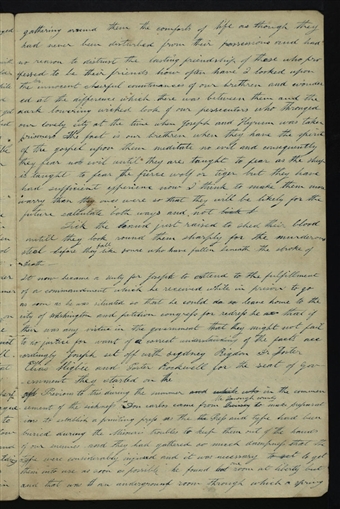 gathering around them the comforts of life as though they
had never been disturbed from their possessions and had
no reason to distrust the lasting friendship of those who pro
fessed to be their friends how often have I looked upon
the innocent cheerful countenances of our brethren and wonder
ed at the difference which there was between them and the
dark lowering wicked look of our persecutors who thronged
our lovely city at the time when Joseph and Hyrum was taken
prisoners the fact is our brethren when they have the spirit
of the gospel upon them meditate no evil and consequently
they fear no evil untill they are taught to fear as the sheep
is taught to fear the fierce wolf or tiger but they have
had sufficient experience now I think to make them more
warry than they once were so that they will be likely for the
future calculate both ways and not
the hand just raised to shed their blood
untill they look round them sharply for the murderous
steel before they fall some who have fallen beneath the stroke of
death
It now became a duty for Joseph to attend to the fulfillment
of a commandment which he received while in prison to go
as soon as he was situated so that he could do so leave home to the
city of Washington and petition congress for redress that if
there was any virtue in the government that they might not fail
to do justice for want of a correct understanding of the facts acc
ordingly Joseph set off with Sydney Rigdon Dr Foster
Elias Higbee and Porter Rockwell for the seat of Gov
ernment they started on the
Previous to this during the summer
ement of the sickness Don Carlos came from
ions to establish a printing press as the press and type had been
buried during the Missouri troubles to keep them out of the hands
of our enemies and they had gathered so much dampness that the
type were considerably injured and it was necessary to get
them into use as soon as possible he found no room at liberty but
one and that was an underground room through which a spring